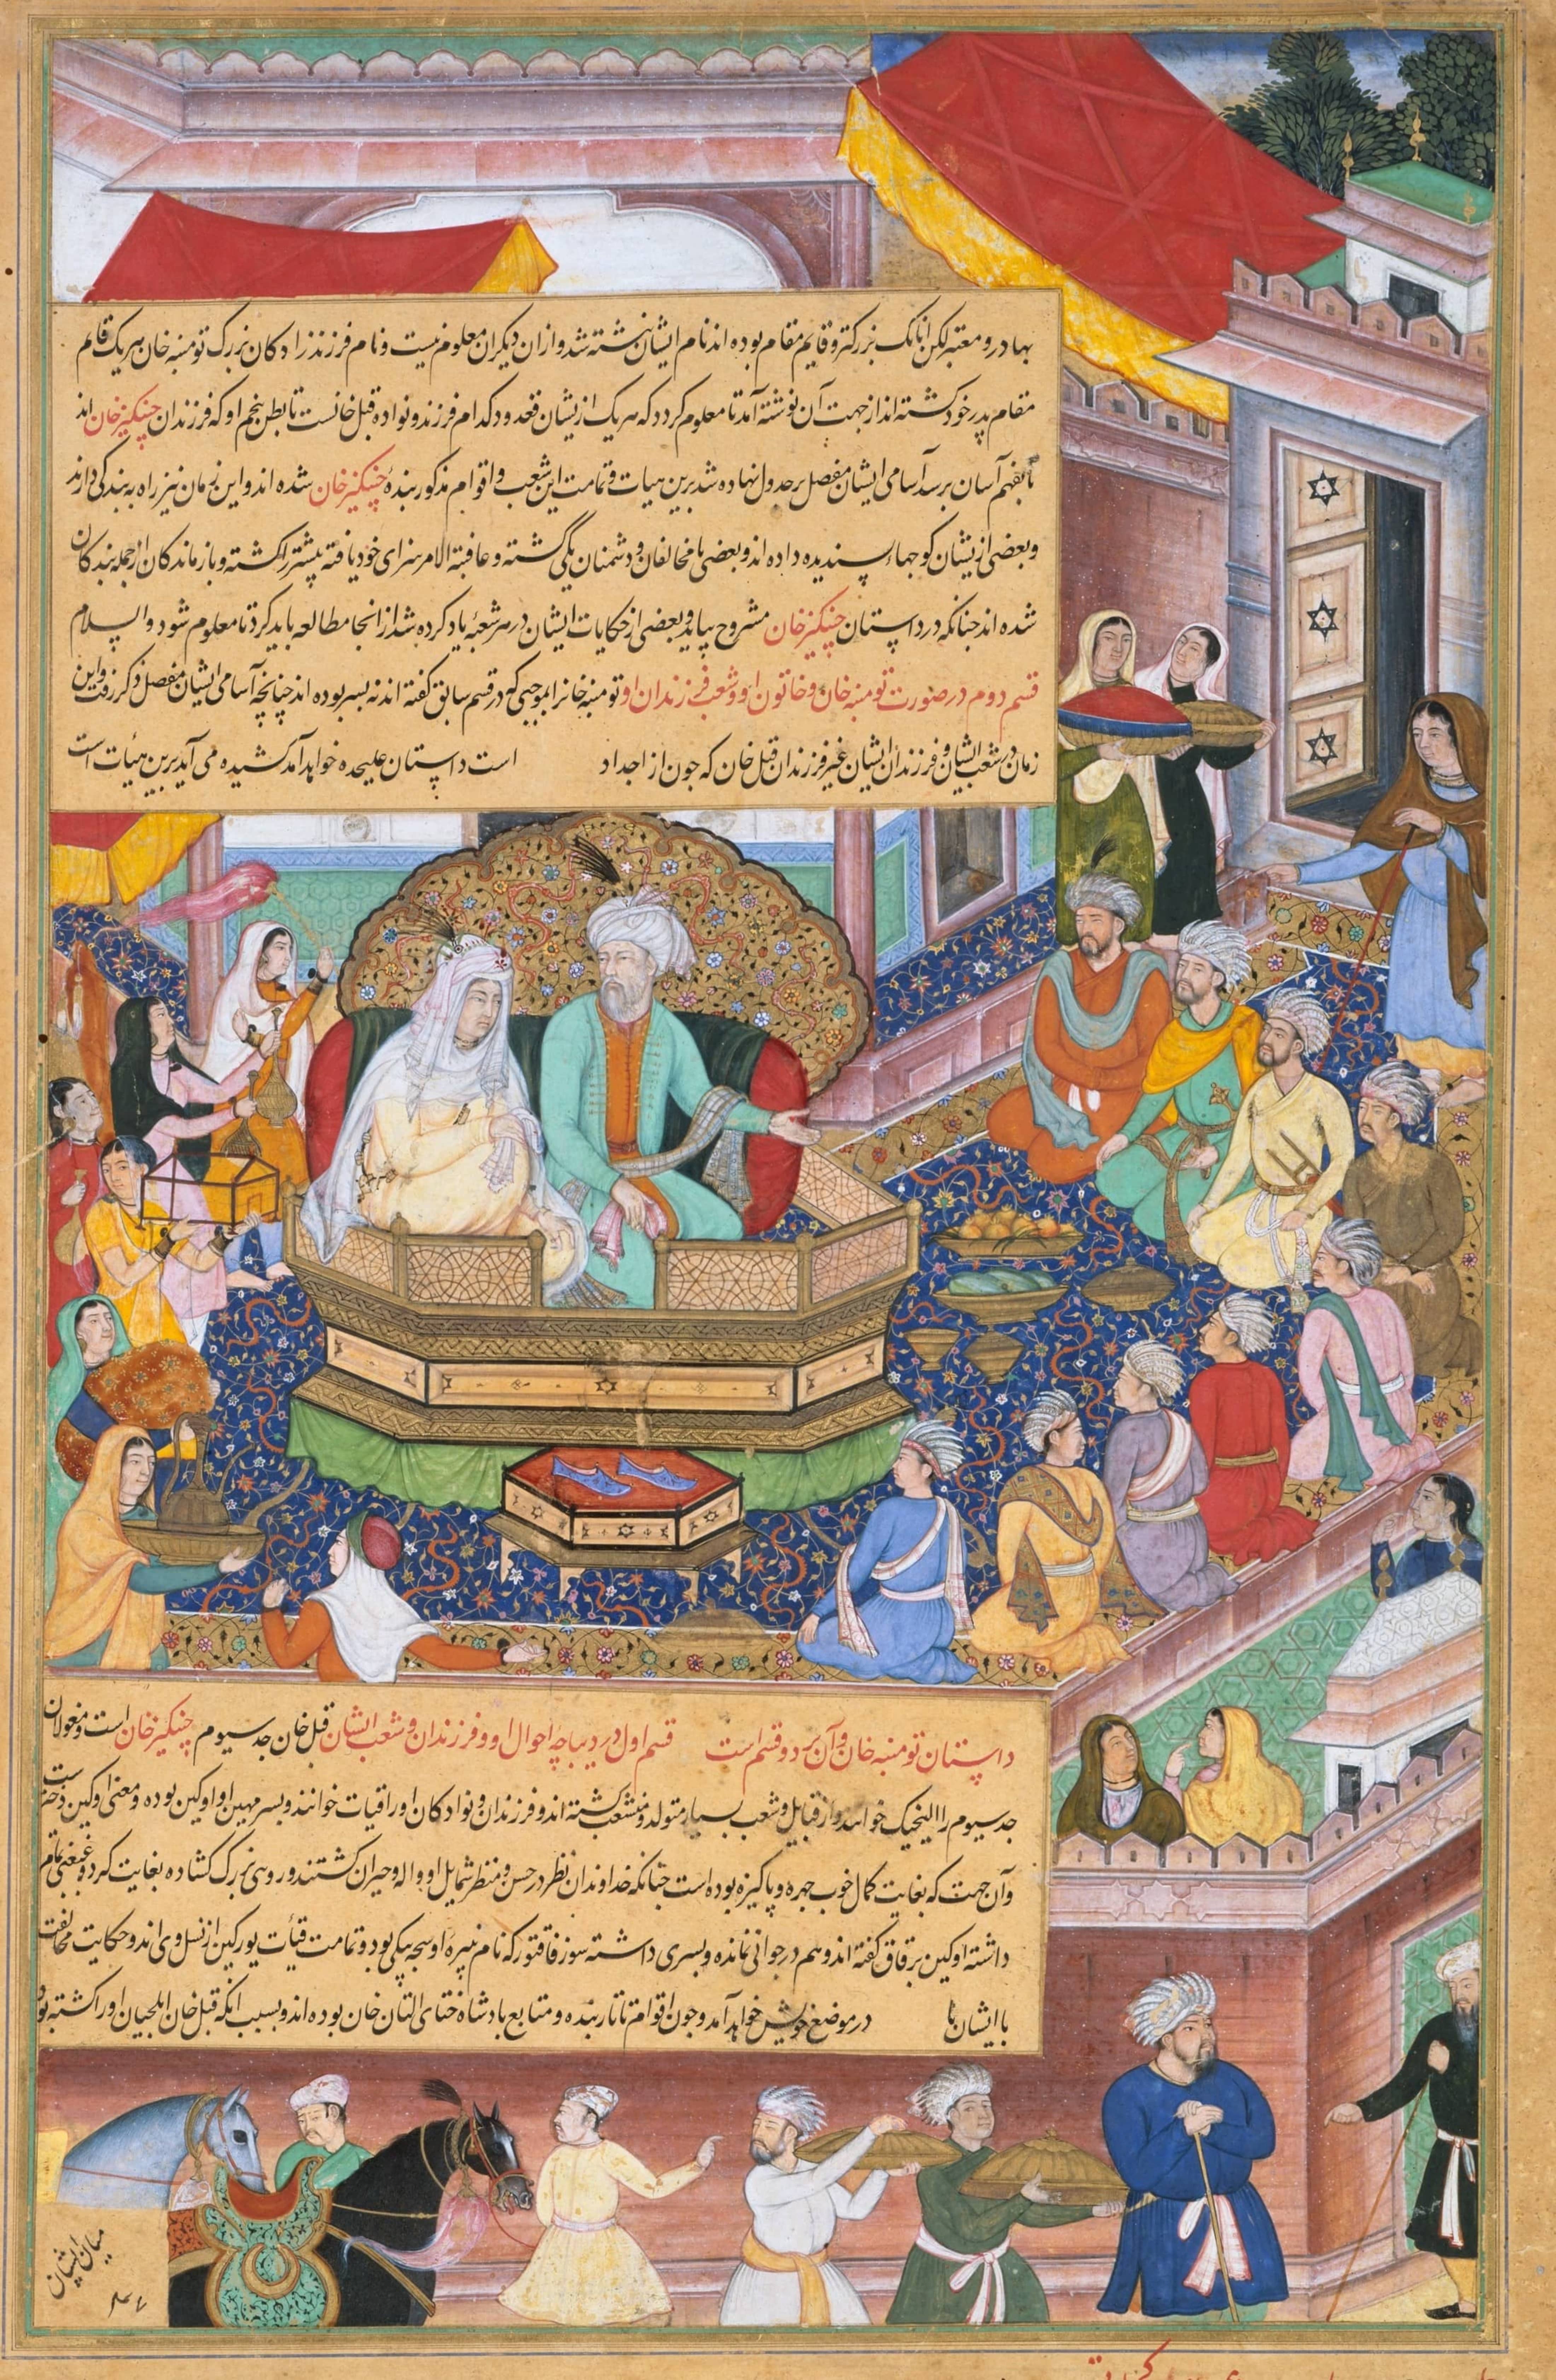 بهادر و معتبر لکن آنانک بزرکتر و قایم مقام بوده اند نام ایشان نبشته شد و ازان دیکران معلوم نیست و نام فرزند زادکان بزرک تومنه خان هریک قایم
مقام پدر خود کشته اند از جهت آن نوشته آمد تا معلوم کردد که هریک ازیشان قعدود کدام فرزند و نواده قبل خانست تا بطن پنجم او که فرزندان چنکیز خان اند
تا بفهم آسان برسد آسامی ایشان مفصل بر جدول نهاده شد برین هیات و تمامت این شعب و اقوام مذکور بندهٔ چنکیز خان شده اند و این زمان نیز راه بندکی دارند
و بعضی ازیشان کوجهاء پسندیده داده اند و بعضی با مخالفان و دشمنان یکی کشته و عاقبة الامر سزای خود یافته بیشتر را کشته و بازماندکان از جمله بندکان
شده اند جنانکه در داستان چنکیز خان مشروح بیاید و بعضی از حکایات ایشان در هر شعبهٔ یاد کرده شد از انجا مطالعه باید کرد تا معلوم شود والسلام
قسم دوم در صورت تومنه خان و خاتون او و شعب فرزندان او تومنه خانرا بموجبی که در قسم سابق کفته اند نه پسر بوده اند چنانچه آسامی ایشان مفصل ذکر رفت و این
زمان شعب ایشان و فرزندان ایشان غیر فرزندان قبل خان که جون از اجداد است داستان علیحده خواهد آمد کشیده می آید برین هیئات است
داستان تومنه خان و آن بر دو قسم است قسم اول در دیباچه احوال او و فرزندان و شعب ایشان قبل خان جد سیوم چنکیز خان است و مغولان
جد سیوم را الینجیک خوانند و از و قبایل و شعب بسیار متولد و منشعب کشته اند و فرزندان و نوادکان او را قیات خوانند و پسر مهین او اوکین بوده و معنی اوکین دختر است
و آن جهت که بغایت کمال خوب جهره و پاکیزه بوده است جنانکه خداوندان نظر در حسن و منظر شمایل او واله و حیران کشتند و روی بزرک کشاده بغایت کرد و غبغبی تمام
داشته اوکین برقاق کفته اند و هم در جوانی نمانده و پسری داشته سورقاقتو که نام نبیره او سجه بیکی بود و تمامت قیات یورکین از نسل وی اند و حکایت مخالفت
با ایشان در موضع خویش خواهد آمد و جون اقوام تاتار بنده و متابع بادشاه ختای التان خان بوده اند و بسبب انکه قبل خان ایلجیان او را کشته بود
میان ایشان